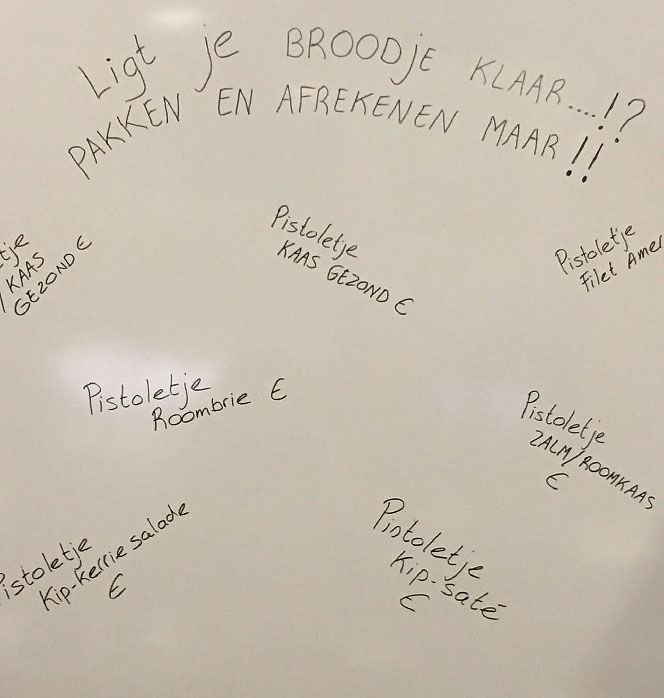 Ligt je BROODJE KLAAR....!?
PAKKEN EN AFREKENEN MAAR!!
/ KAAS
GEZOND €
Pistoletje
KAAS GEZOND €
Pistoletje
Filet Amer
Pistoletje
Roombrie €
Pistoletje
ZALM/ROOMKAAS
€
Pistoletje
Kip-kerrie salade
€
Pistoletje
Kip-saté
€